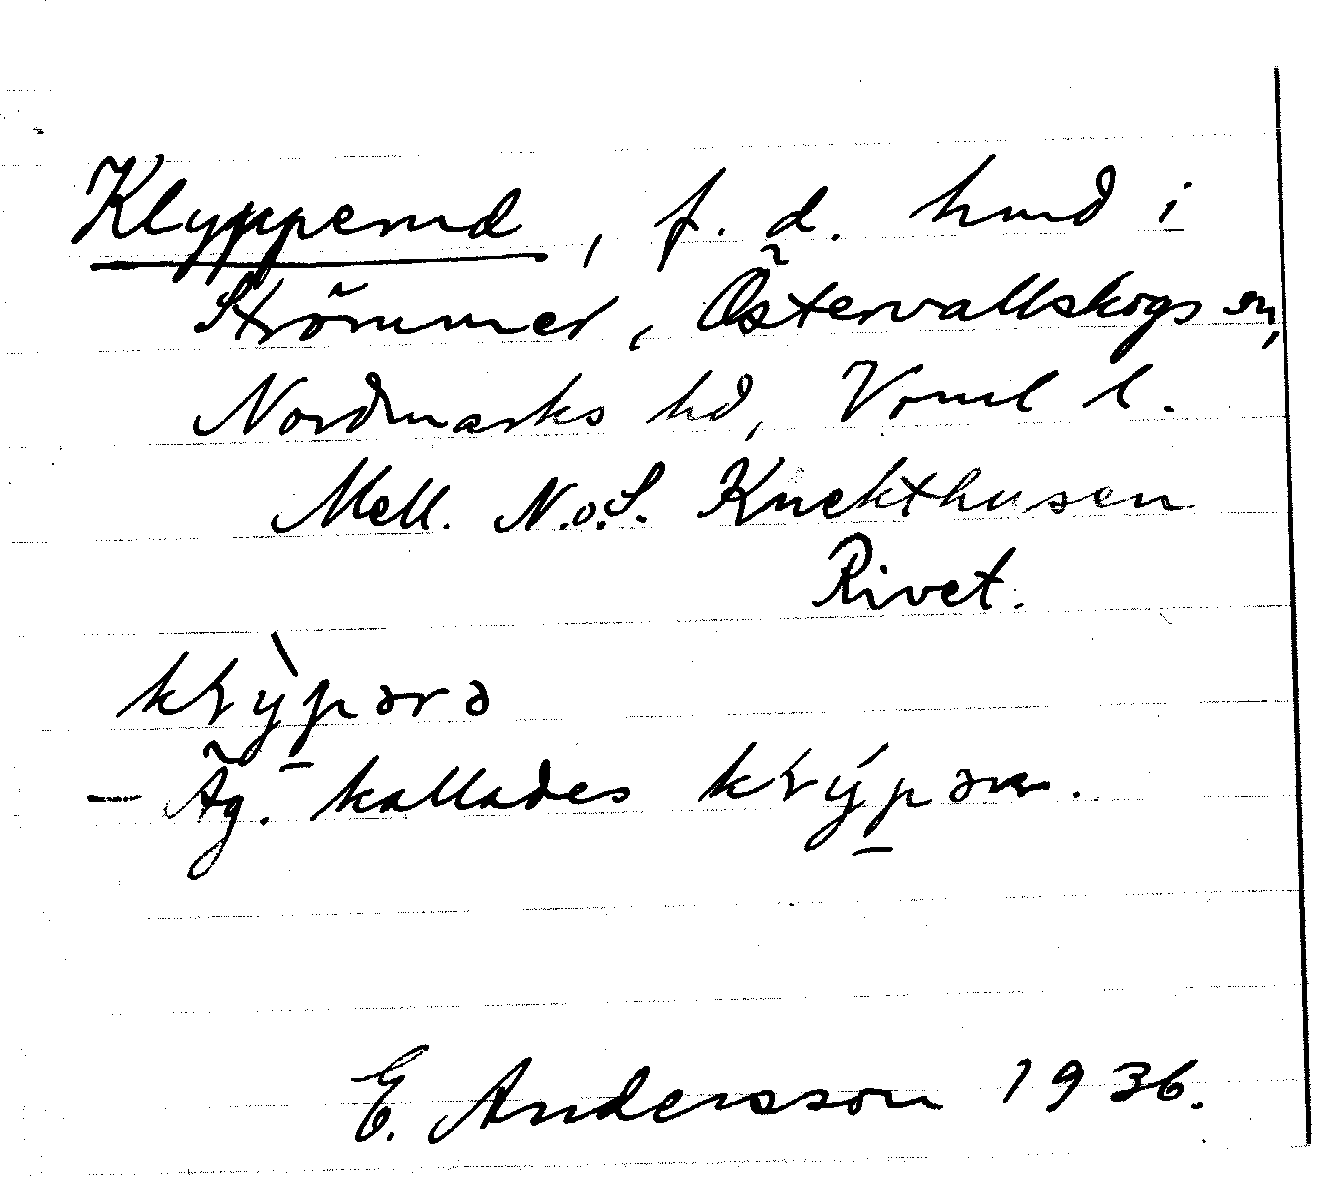 Klypperud, f. d. hmd i
Strömmer, Östervallskogs sn,
Nordmarks hd, Vrml l.
Mell. N.o.S. Knekthusen
Rivet.
kɽỳpərə
— Äg. kallades kɽýpərn.
E. Andersson 1936.